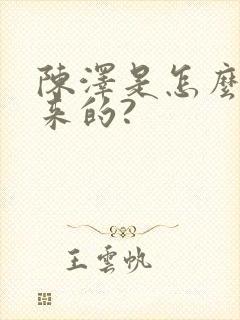 陳澤是怎麼
來的?
王雲帆